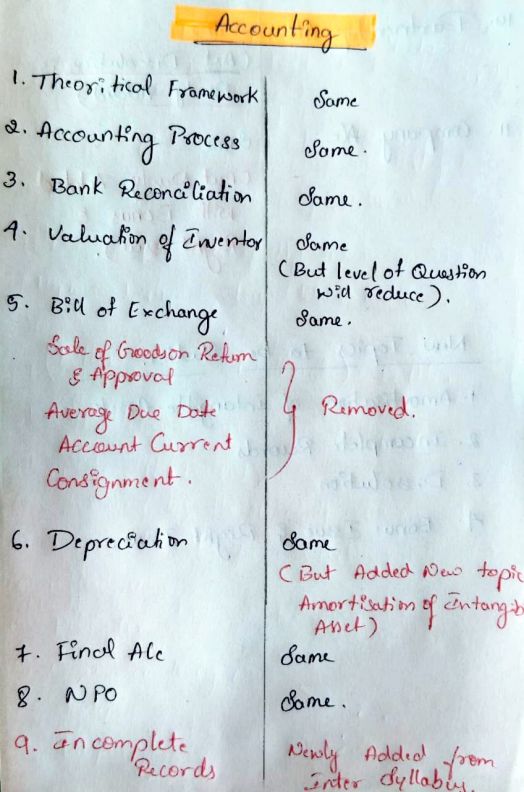 Accounting
1. Theoritical Framework Same
2. Accounting Process Same.
3. Bank Reconciliation Same.
4. Valuation of Inventor Same
(But level of Question
will reduce).
5. Bill of Exchange Same.
Sale of Goods on Return
& Approval
Average Due Date Removed.
Account Current
Consignment.
6. Depreciation Same
(But Added New topic
Amortisation of Intangib
Asset)
7. Final A/c Same
8. NPO Same.
9. Incomplete Newly Added from
Records Inter Syllabus.